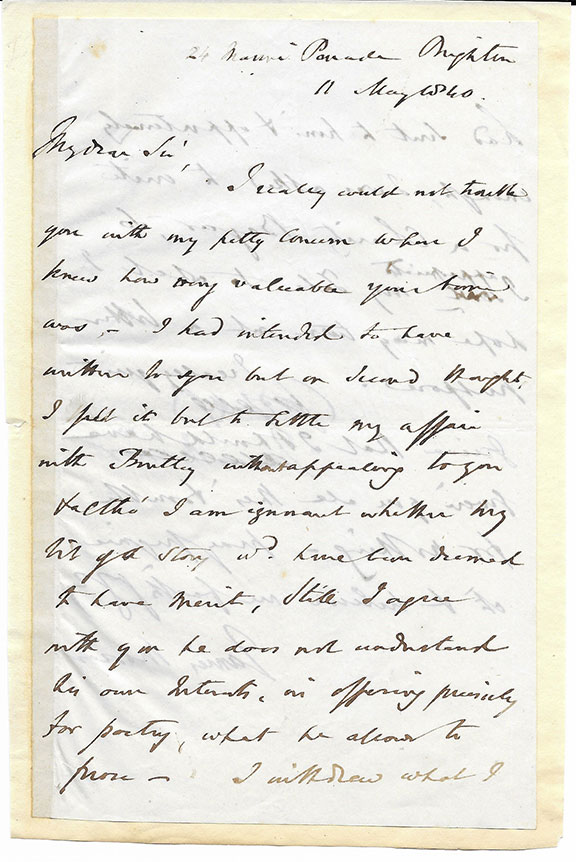 24 Marine Parade Brighton
11 May 1840
My dear Sir,
I really could not trouble
you with my petty Concern when I
knew how very valuable your time
was, – I had intended to have
written to you but on second thought
I felt it but to settle my affair
with Bentley without appealing to you
& altho' I am ignorant whether my
story wd. have been deemed
to have merit, Still I agree
with you he does not understand
his own Interests, in offering precisely
for poetry, what he allows to
prose – I withdrew what I